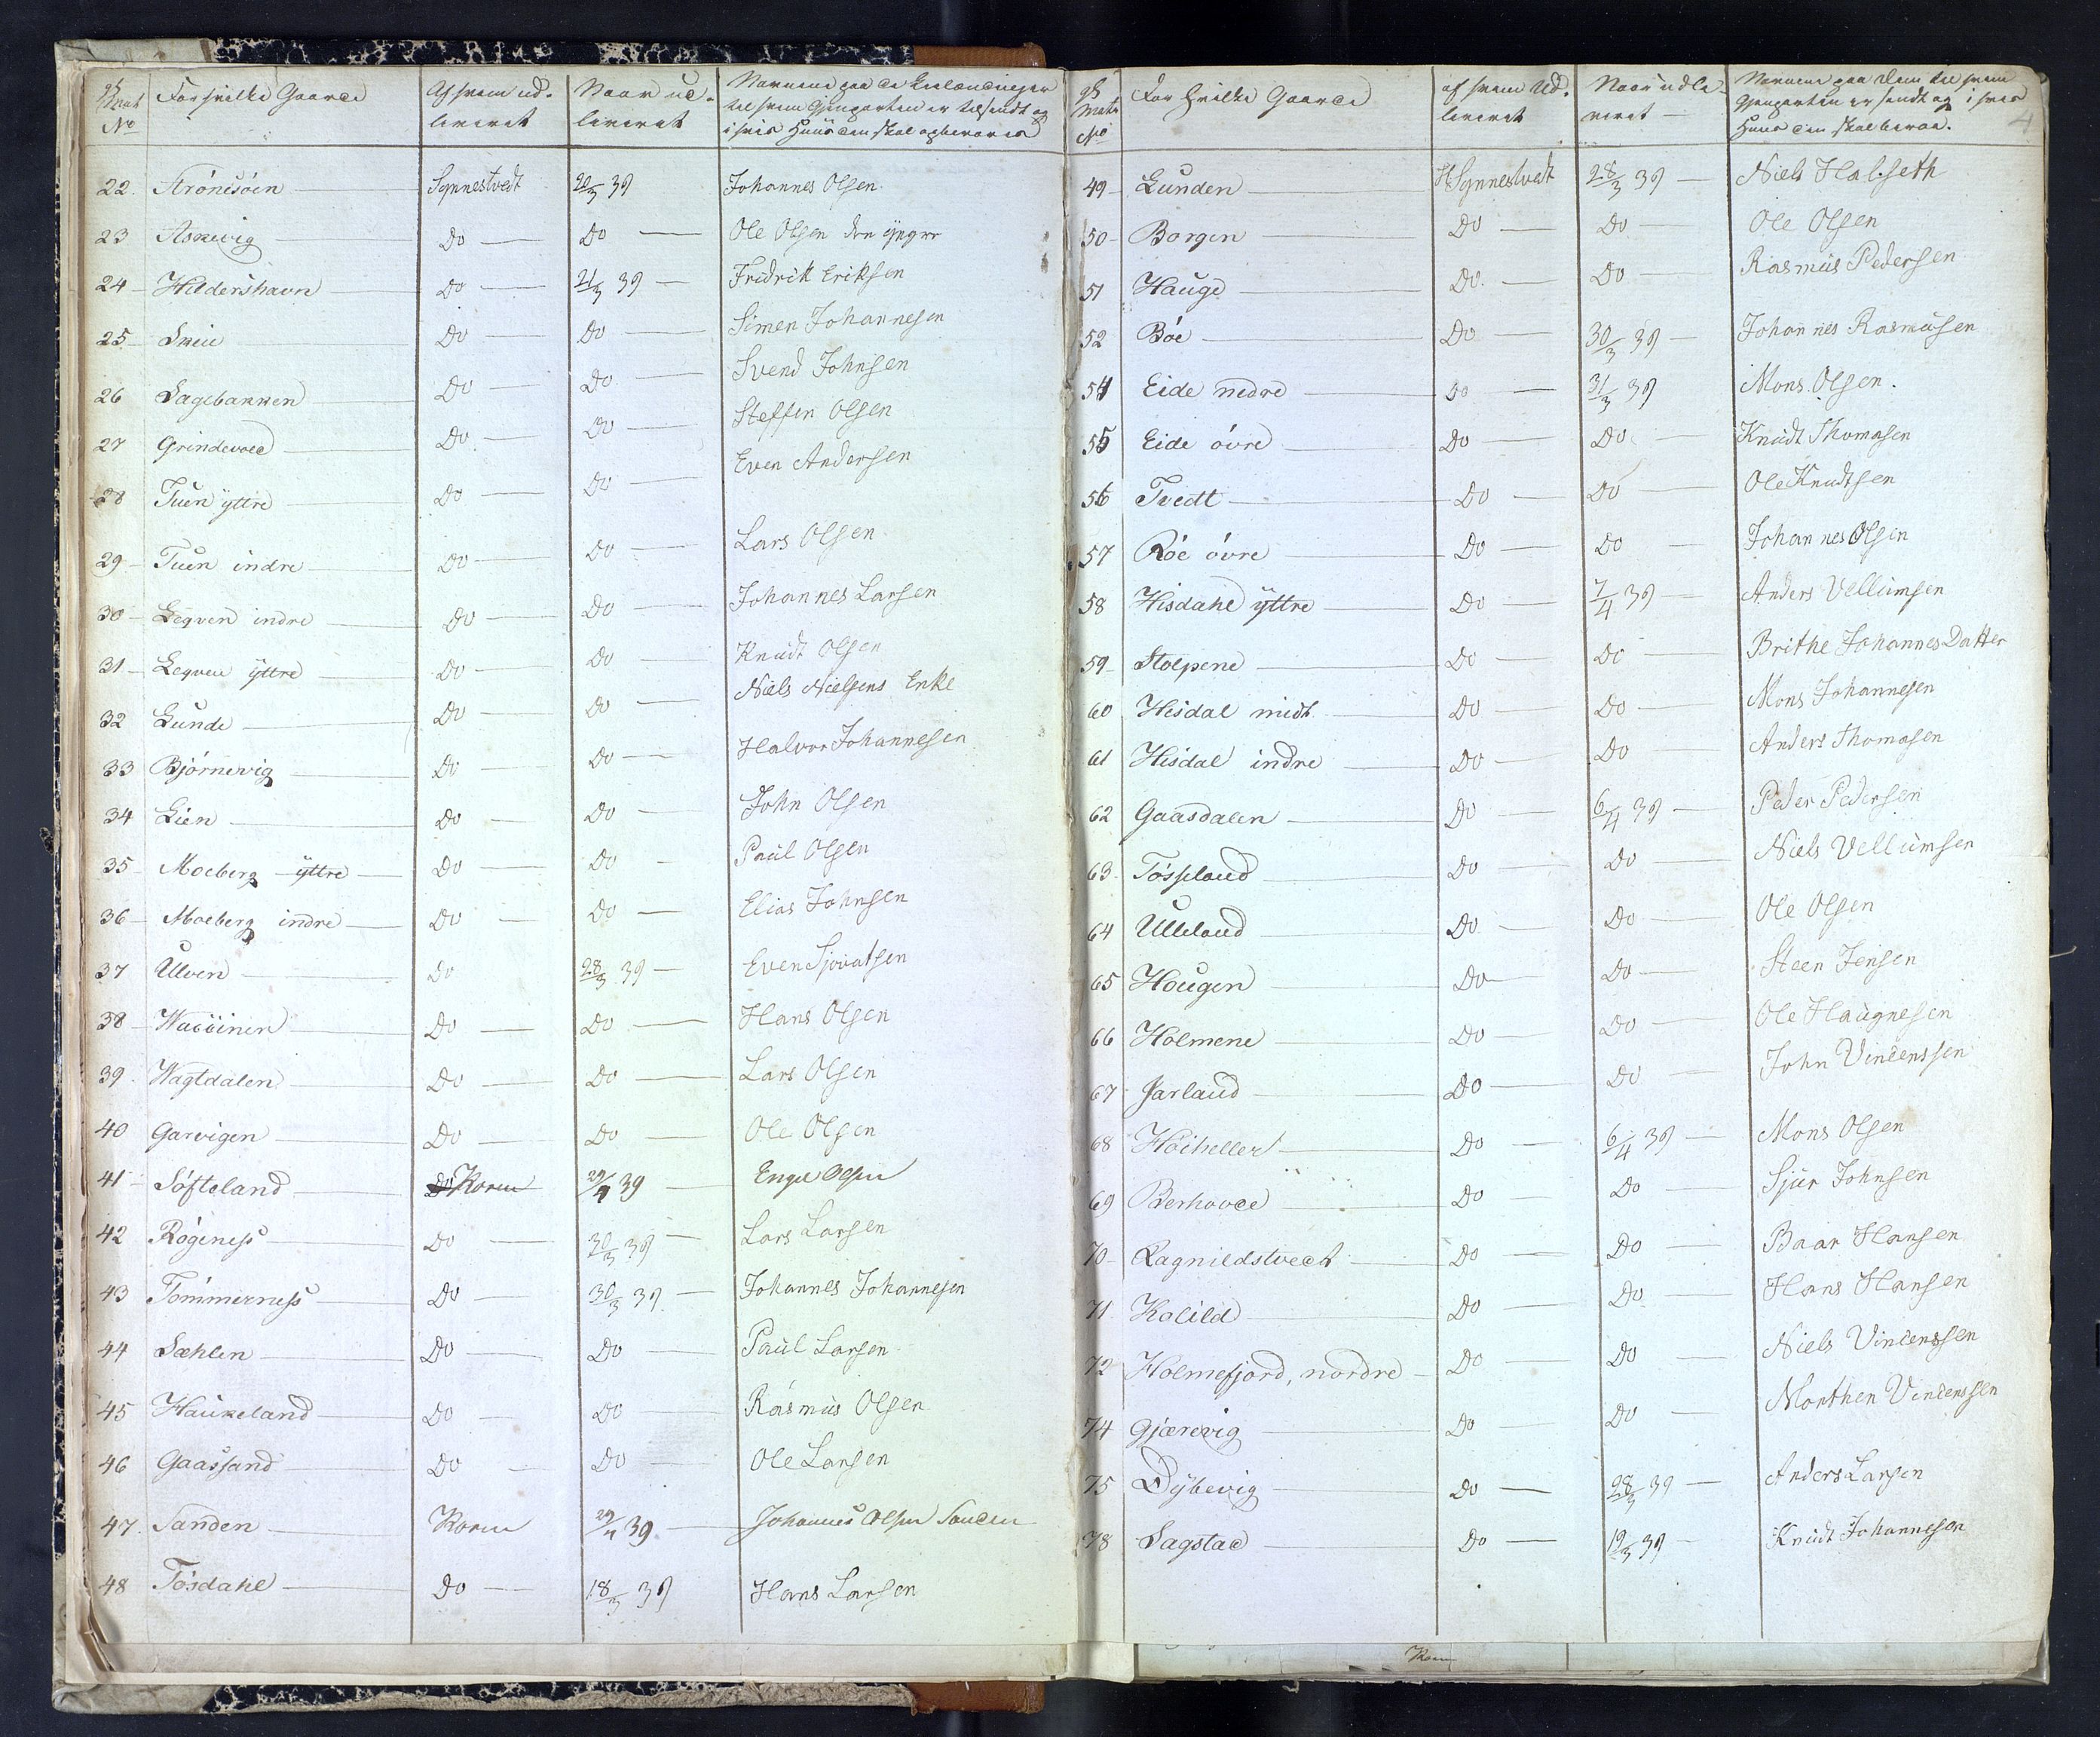 Mat No For hvilke Gaarde Af hvem udleveret Naar udleveret Navnene paa de til hvem Gjenparten er tilsendt og i hvis Huus den skal opbevares
22 Strónesóen Synnestvedt 20/3 39 Johannes Olsen
23 Askevig Do Do Ole Olsen den yngre
24 Hildershavn Do 21/3 39 Fredrik Eriksen
25 Do Do Simen Johannesen
26 Sagebakken Do Do Svend Johnsen
27 Grindevold Do Do Steffen Olsen
28 Tuen yttre Do Do Even Andersen
29 Tuen indre Do Do Lars Olsen
30 Legven indre Do Do Johannes Larsen
31 Legven yttre Do Do Knudt Olsen
32 Lunde Do Do Niels Nielsens Enke
33 Bjórnevig Do Do Halvor Johannesen
34 Lien Do Do John Olsen
35 Moberg yttre Do Do Paul Olsen
36 Moberg indre Do Do Elias Johnsen
37 Ulven Do 28/3 39 Even Sjovatsen
38 Do Do Hans Olsen
39 Vagtdalen Do Do Lars Olsen
40 Garvigen Do Do Ole Olsen
41 Sófteland Do Koren 29/4 39 Engel Olsen
42 Róginess Do 30/3 39 Lars Larsen
43 Tómmerness Do 30/3 39 Johannes Johannesen
44 Sæhlen Do Do Paul Larsen
45 Haukeland Do Do Rasmus Olsen
46 Gaassand Do Do Ole Larsen
47 Sanden Koren 29/4 39 Johannes Olsen Sanden
48 Tósdahl Do 18/3 39 Hans Larsen
Mat No For hvilke Gaarde af hvem Udleveret Naar udleveret Navnene paa dem til hvem Gjenparten er sendt og i hvis Huus den skal bevares.
4
49 Lunden H Synnestvedt 28/3 39 Niels Halseth
50 Borgen Do Do Ole Olsen
51 Hauge Do Do Rasmus Pedersen
52 Bóe Do 30/3 39 Johannes Rasmusen
54 Eide nedre Do 31/3 39 Mons Olsen.
55 Eide óvre Do Do Knudt Thomasen
56 Tvedt Do Do Ole Knudtsen
57 Róe óvre Do Do Johannes Olsen
58 Hisdahl yttre Do 7/4 39 Anders Vellumsen
59 Stolpene Do Do Brithe Johannes Datter
60 Hisdal midt Do Do Mons Johannesen
61 Hisdal indre Do Do Anders Thomasen
62 Gaasdalen Do 6/4 39 Peder Pedersen
63 Tósseland Do Do Niels Vellumsen
64 Ulleland Do Do Ole Olsen
65 Hougen Do Do Steen Jensen
66 Holmene Do Do Ole Haugnesen
67 Jarland Do Do John Vincenssen
68 Hóiheller Do 6/4 39 Mons Olsen
69 Berhovde Do Do Sjur Johnsen
70 Ragnildstvedt Do Do Baar Hansen
71 Kolild Do Do Hans Hansen
72 Holmefjord, nordre Do Do Niels Vincenssen
74 Gjærevig Do Do Monthen Vincenssen
75 Dybevig Do 28/3 39 Anders Larsen
78 Sagstad Do 19/3 39 Knudt Johannesen
Koren